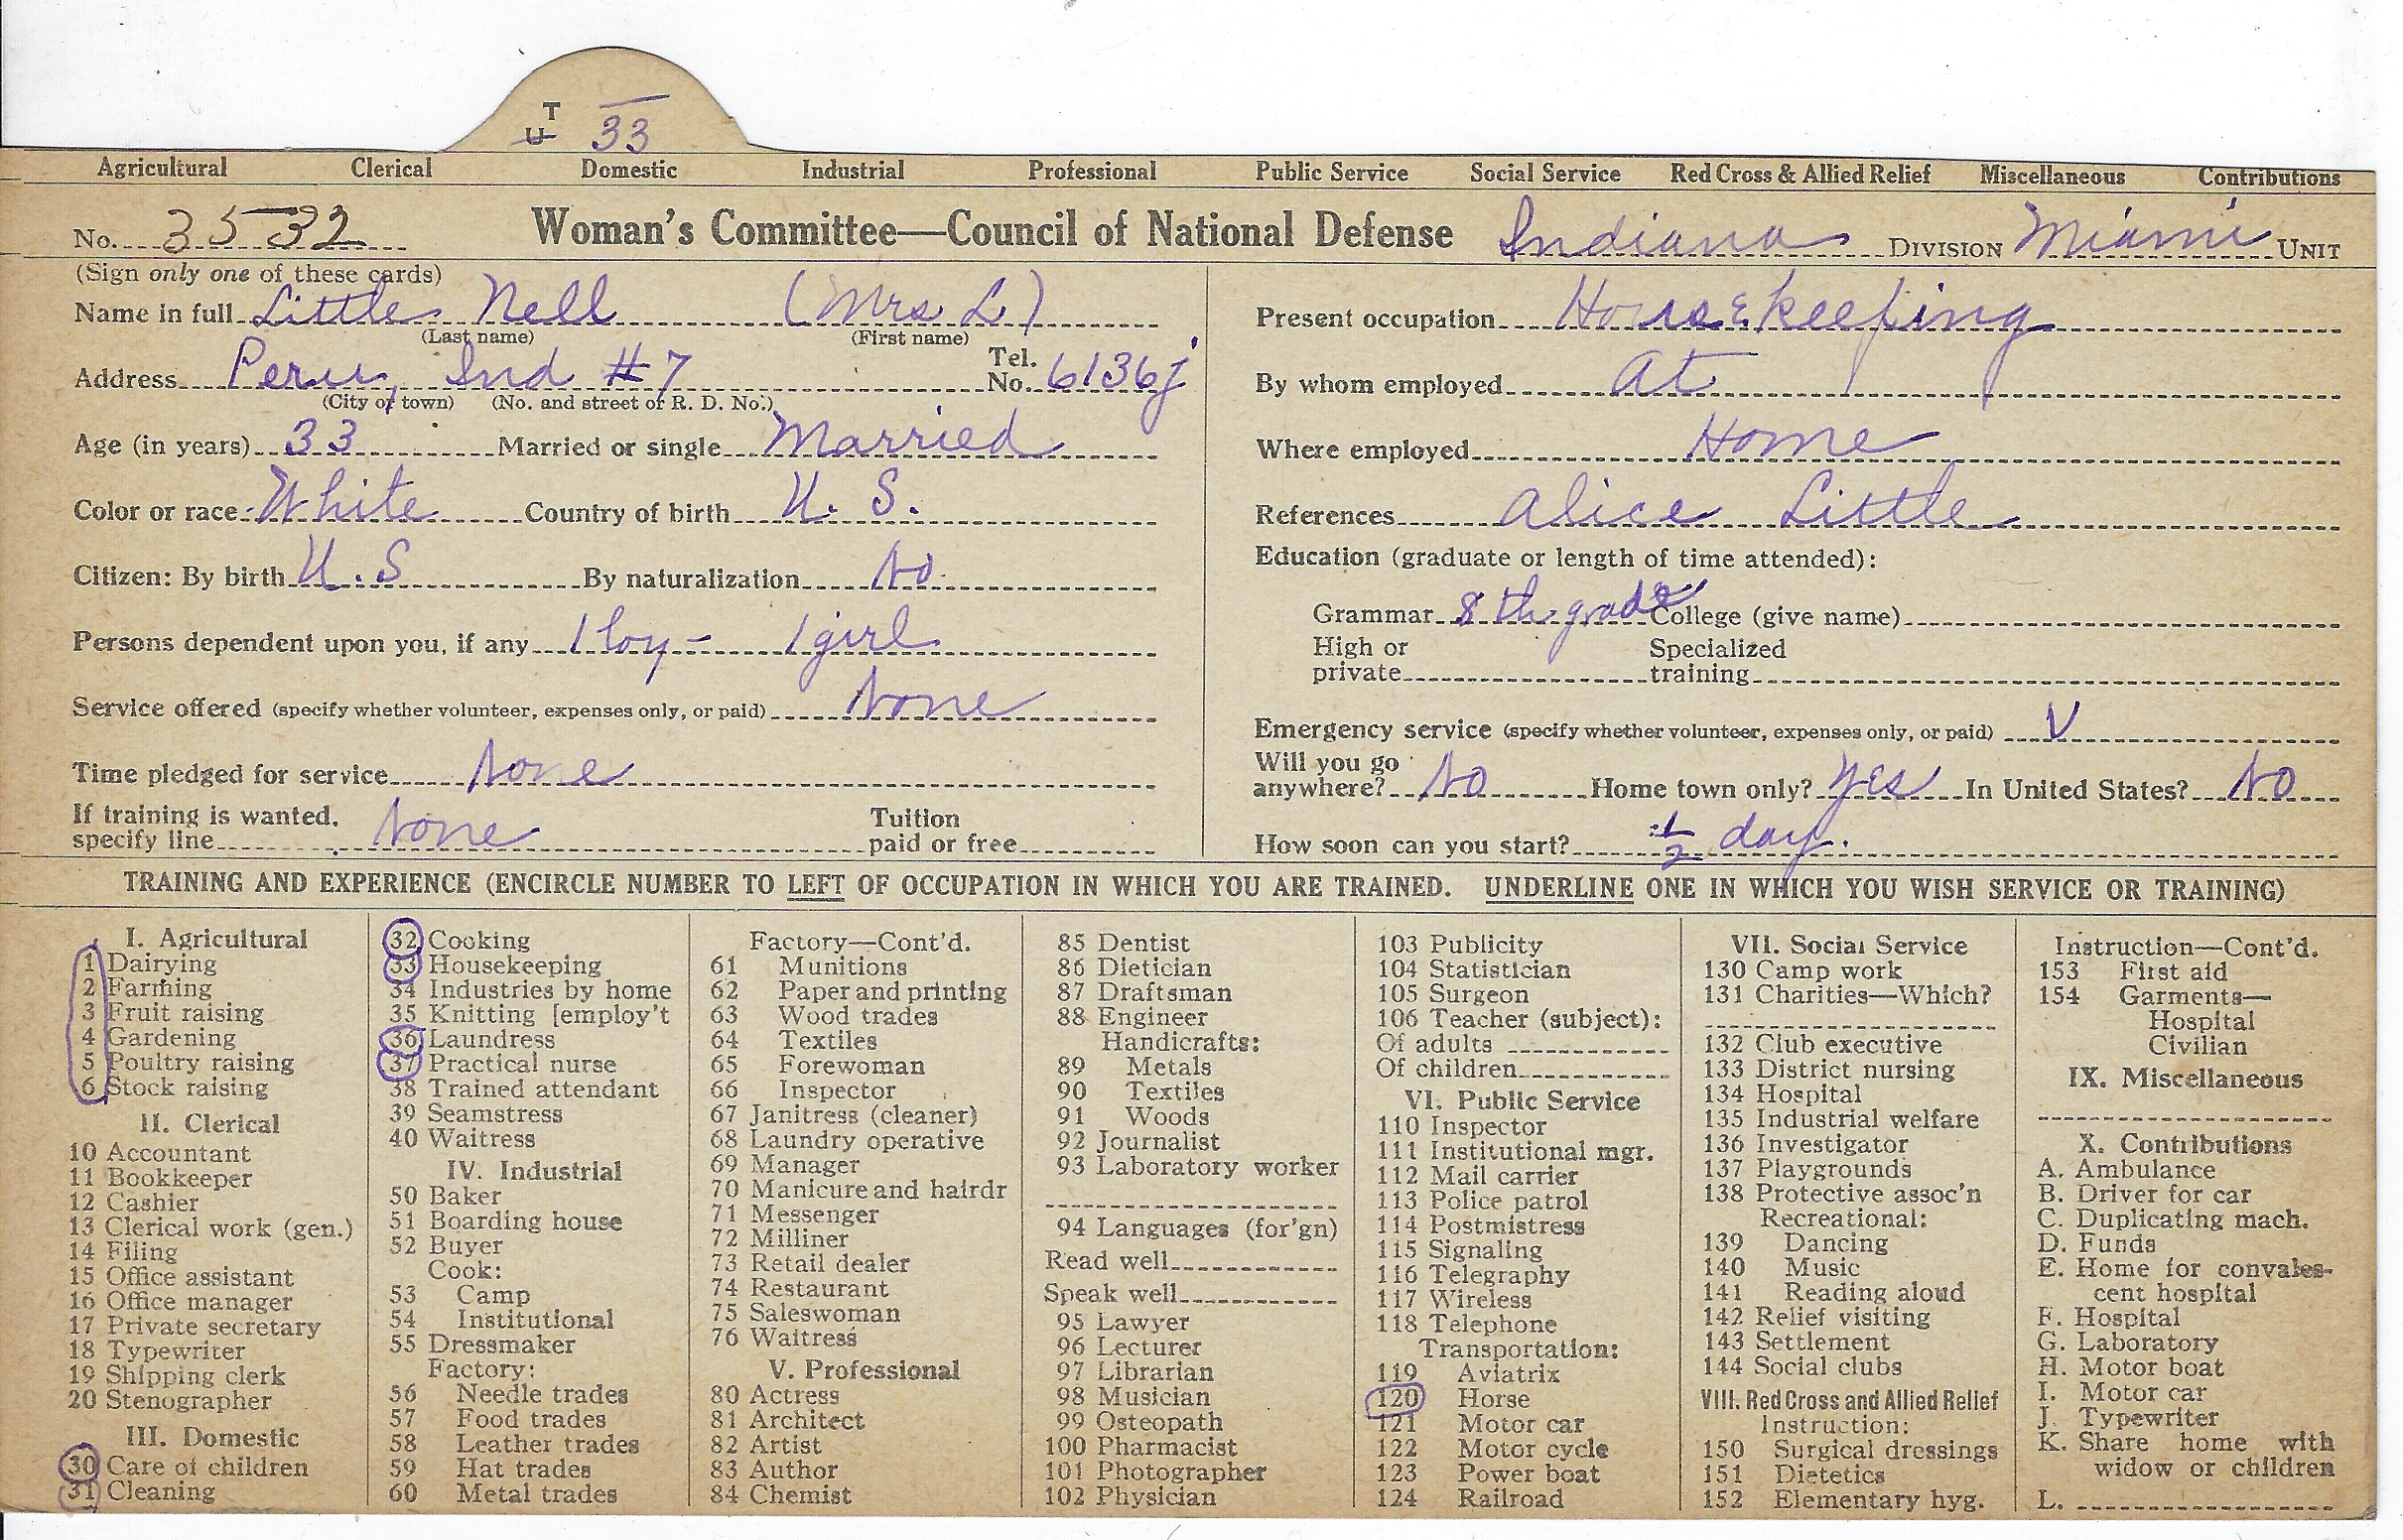 T
U 33
Agricultural Clerical Domestic Industrial Professional Public Service Social Service Red Cross & Allied Relief Miscellaneous Contributions
No. 3532 Woman's Committee—Council of National Defense Indiana DIVISION Miami UNIT
(Sign only one of these cards)
Name in full Little Nell (Mrs L)
(Last name) (First name)
Address Peru, Ind #7 Tel. No. 6136j
(City or town) (No. and street or R. D. No.)
Age (in years) 33 Married or single Married
Color or race White Country of birth U. S.
Citizen: By birth U. S By naturalization No
Persons dependent upon you, if any 1 boy - 1 girl
Service offered (specify whether volunteer, expenses only, or paid) None
Time pledged for service None
If training is wanted, specify line None Tuition paid or free
Present occupation Housekeeping
By whom employed At
Where employed Home
References Alice Little
Education (graduate or length of time attended):
Grammar 8th grade College (give name)
High or private Specialized training
Emergency service (specify whether volunteer, expenses only, or paid) V
Will you go anywhere? No Home town only? Yes In United States? No
How soon can you start? 1/2 day.
TRAINING AND EXPERIENCE (ENCIRCLE NUMBER TO LEFT OF OCCUPATION IN WHICH YOU ARE TRAINED. UNDERLINE ONE IN WHICH YOU WISH SERVICE OR TRAINING)
I. Agricultural
1 Dairying
2 Farming
3 Fruit raising
4 Gardening
5 Poultry raising
6 Stock raising
II. Clerical
10 Accountant
11 Bookkeeper
12 Cashier
13 Clerical work (gen.)
14 Filing
15 Office assistant
16 Office manager
17 Private secretary
18 Typewriter
19 Shipping clerk
20 Stenographer
III. Domestic
30 Care of children
31 Cleaning
32 Cooking
33 Housekeeping
34 Industries by home
35 Knitting [employ't
36 Laundress
37 Practical nurse
38 Trained attendant
39 Seamstress
40 Waitress
IV. Industrial
50 Baker
51 Boarding house
52 Buyer
Cook:
53 Camp
54 Institutional
55 Dressmaker
Factory:
56 Needle trades
57 Food trades
58 Leather trades
59 Hat trades
60 Metal trades
Factory—Cont'd.
61 Munitions
62 Paper and printing
63 Wood trades
64 Textiles
65 Forewoman
66 Inspector
67 Janitress (cleaner)
68 Laundry operative
69 Manager
70 Manicure and hairdr
71 Messenger
72 Milliner
73 Retail dealer
74 Restaurant
75 Saleswoman
76 Waitress
V. Professional
80 Actress
81 Architect
82 Artist
83 Author
84 Chemist
85 Dentist
86 Dietician
87 Draftsman
88 Engineer
Handicrafts:
89 Metals
90 Textiles
91 Woods
92 Journalist
93 Laboratory worker
94 Languages (for'gn)
Read well
Speak well
95 Lawyer
96 Lecturer
97 Librarian
98 Musician
99 Osteopath
100 Pharmacist
101 Photographer
102 Physician
103 Publicity
104 Statistician
105 Surgeon
106 Teacher (subject):
Of adults
Of children
VI. Public Service
110 Inspector
111 Institutional mgr.
112 Mail carrier
113 Police patrol
114 Postmistress
115 Signaling
116 Telegraphy
117 Wireless
118 Telephone
Transportation:
119 Aviatrix
120 Horse
121 Motor car
122 Motor cycle
123 Power boat
124 Railroad
VII. Social Service
130 Camp work
131 Charities—Which?
132 Club executive
133 District nursing
134 Hospital
135 Industrial welfare
136 Investigator
137 Playgrounds
138 Protective assoc'n
Recreational:
139 Dancing
140 Music
141 Reading aloud
142 Relief visiting
143 Settlement
144 Social clubs
VIII. Red Cross and Allied Relief
Instruction:
150 Surgical dressings
151 Dietetics
152 Elementary hyg.
Instruction—Cont'd.
153 First aid
154 Garments—
Hospital
Civilian
IX. Miscellaneous
X. Contributions
A. Ambulance
B. Driver for car
C. Duplicating mach.
D. Funds
E. Home for convales-
cent hospital
F. Hospital
G. Laboratory
H. Motor boat
I. Motor car
J. Typewriter
K. Share home with
widow or children
L.